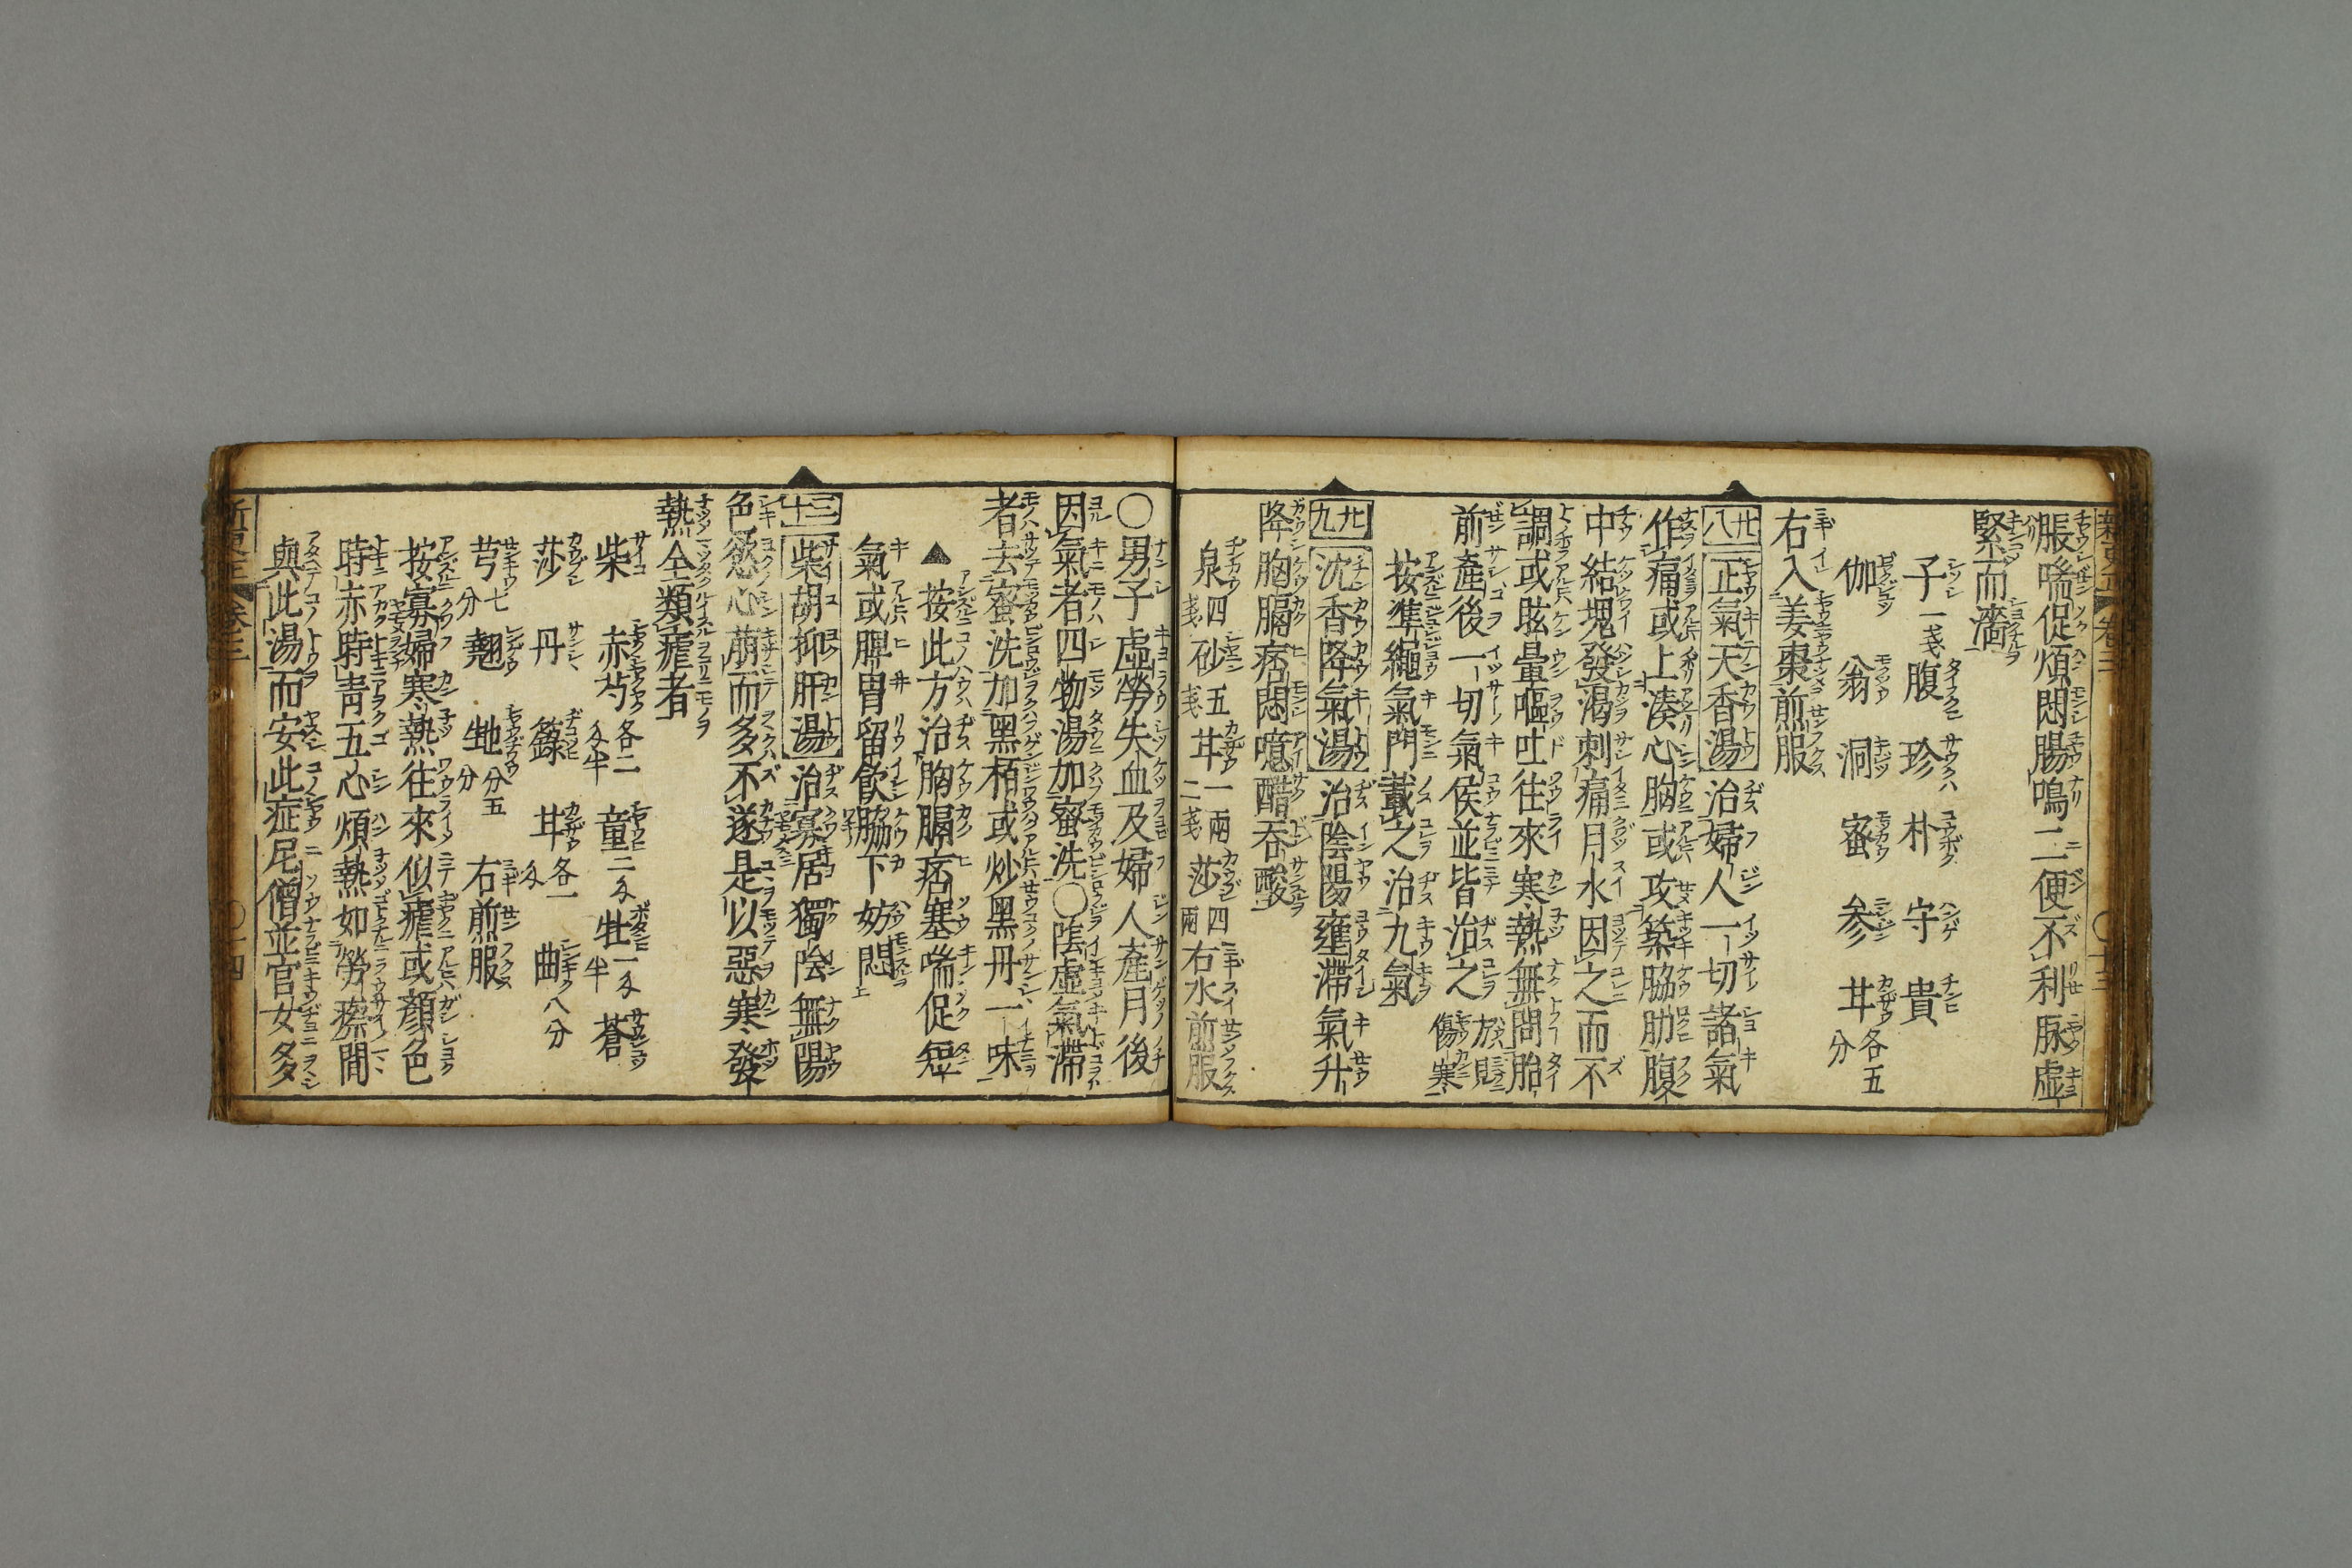 脹喘促煩悶腸鳴二便不利脉虛
緊而濇
子一戔 腹 珍 朴 守 貴
伽 翁 洞 蜜 参 甘各五分
右入姜棗煎服
廿八 正氣天香湯 治婦人一切諸氣
作痛或上湊心胸或攻築脇肋腹
中結塊發渴刺痛月水因之而不
調或眩暈嘔吐往來寒熱無問胎
前產後一切氣候並皆治之
按準繩氣門載之治九氣
廿九 沈香降氣湯 治陰陽壅滯氣升
降胸膈痞悶噫醋吞酸
泉四戔 砂五戔 甘一兩二戔 莎四兩 右水煎服
〇男子虛勞失血及婦人產月後
因氣者四物湯加蜜洗〇陰虛氣滯
者去蜜洗加黑栢或炒黑丹一味
▲按此方治胸膈痞塞喘促短
氣或脾胃留飲脇下妨悶
三十 柴胡抑肝湯 治寡居獨陰無陽
色慾心萠而多不遂是以惡寒發
熱全類瘧者
柴 赤芍各二匁半 童二匁 牡一匁半 蒼
莎 丹 籙 甘各一匁 曲八分
芎七分 翹 地五分 右煎服
按寡婦寒熱往來似瘧或顏色
時赤時青五心煩熱如勞瘵間
與此湯而安此症尼僧並官女多
卷三